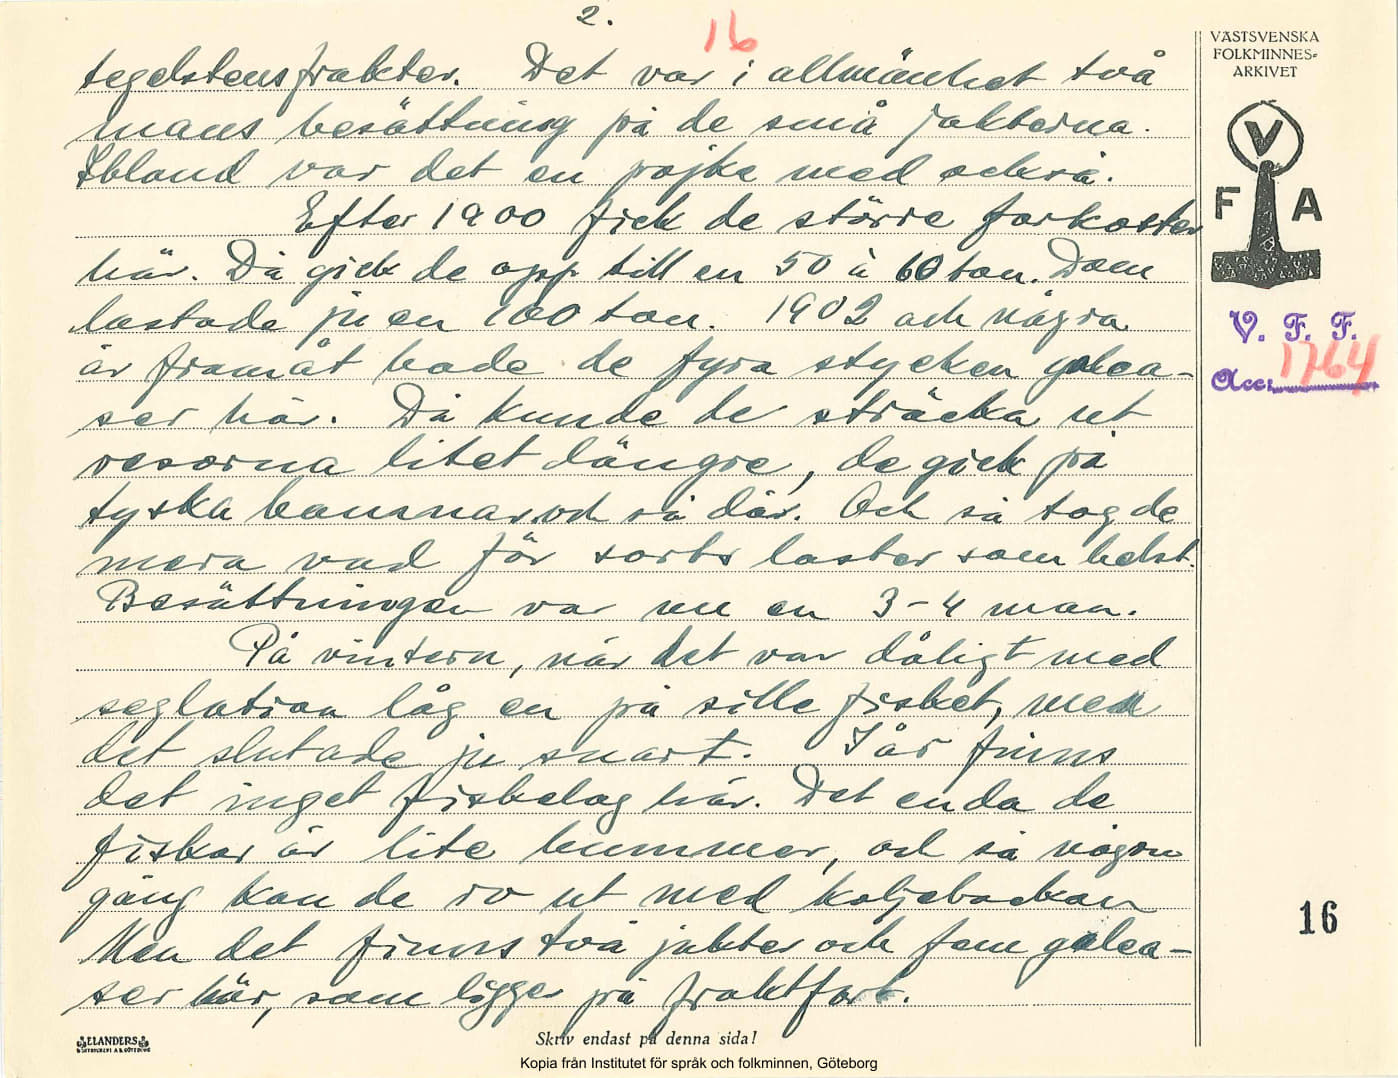 2.
16
tegelstensfrakter. Det var i allmänhet två
mans besättning på de små jakterna.
Ibland var det en pojke med också.
Efter 1900 fick de större farkoster
här. Då gick de opp till en 50 à 60 ton. Dom
lastade ju en 100 ton. 1902 och några
år framåt hade de fyra stycken galea-
ser här. Då kunde de sträcka ut
resorna litet längre, de gick på
tyska hamnar och så där. Och så tog de
mera vad för sorts laster som helst.
Besättningen var nu en 3-4 man.
På vintern, när det var dåligt med
seglation låg en på sillefisket, men
det slutade ju snart. I år finns
det inget fiskelag här. Det enda de
fiskar är lite hummer, och så någon
gång kan de ro ut med koljebackan
Men det finns två jakter och fem galea-
ser här, som ligger på fraktfart.
VÄSTSVENSKA
FOLKMINNES-
ARKIVET
V
F A
V. F. F.
Acc: 1764
16
ELANDERS
Skriv endast på denna sida!
Kopia från Institutet för språk och folkminnen, Göteborg